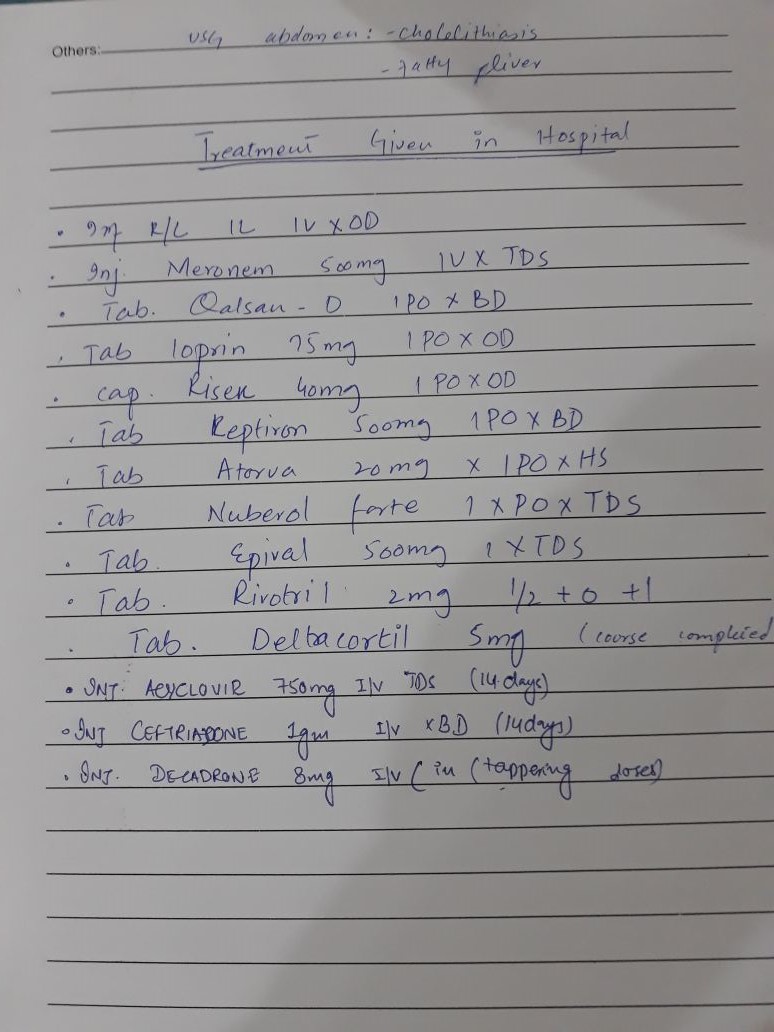 Others: USG abdomen: - Cholelithiasis
- Fatty liver
Treatment Given in Hospital
• Inf R/L 1L IV X OD
• Inj. Meronem 500mg IV X TDS
• Tab. Qalsan - D 1 PO X BD
• Tab loprin 75mg 1 PO X OD
• cap. Risek 40mg 1 PO X OD
• Tab Keptiron 500mg 1 PO X BD
• Tab Atorva 20mg X 1 PO X HS
• Tab Nuberol forte 1 X PO X TDS
• Tab. Epival 500mg 1 X TDS
• Tab. Rivotril 2mg 1/2 + 0 + 1
• Tab. Deltacortil 5mg (course completed
• INJ. ACYCLOVIR 750mg I/V TDS (14 days)
• INJ CEFTRIAXONE 1gm I/V X BD (14 days)
• INJ. DECADRONE 8mg I/V ( in (tappering doses)